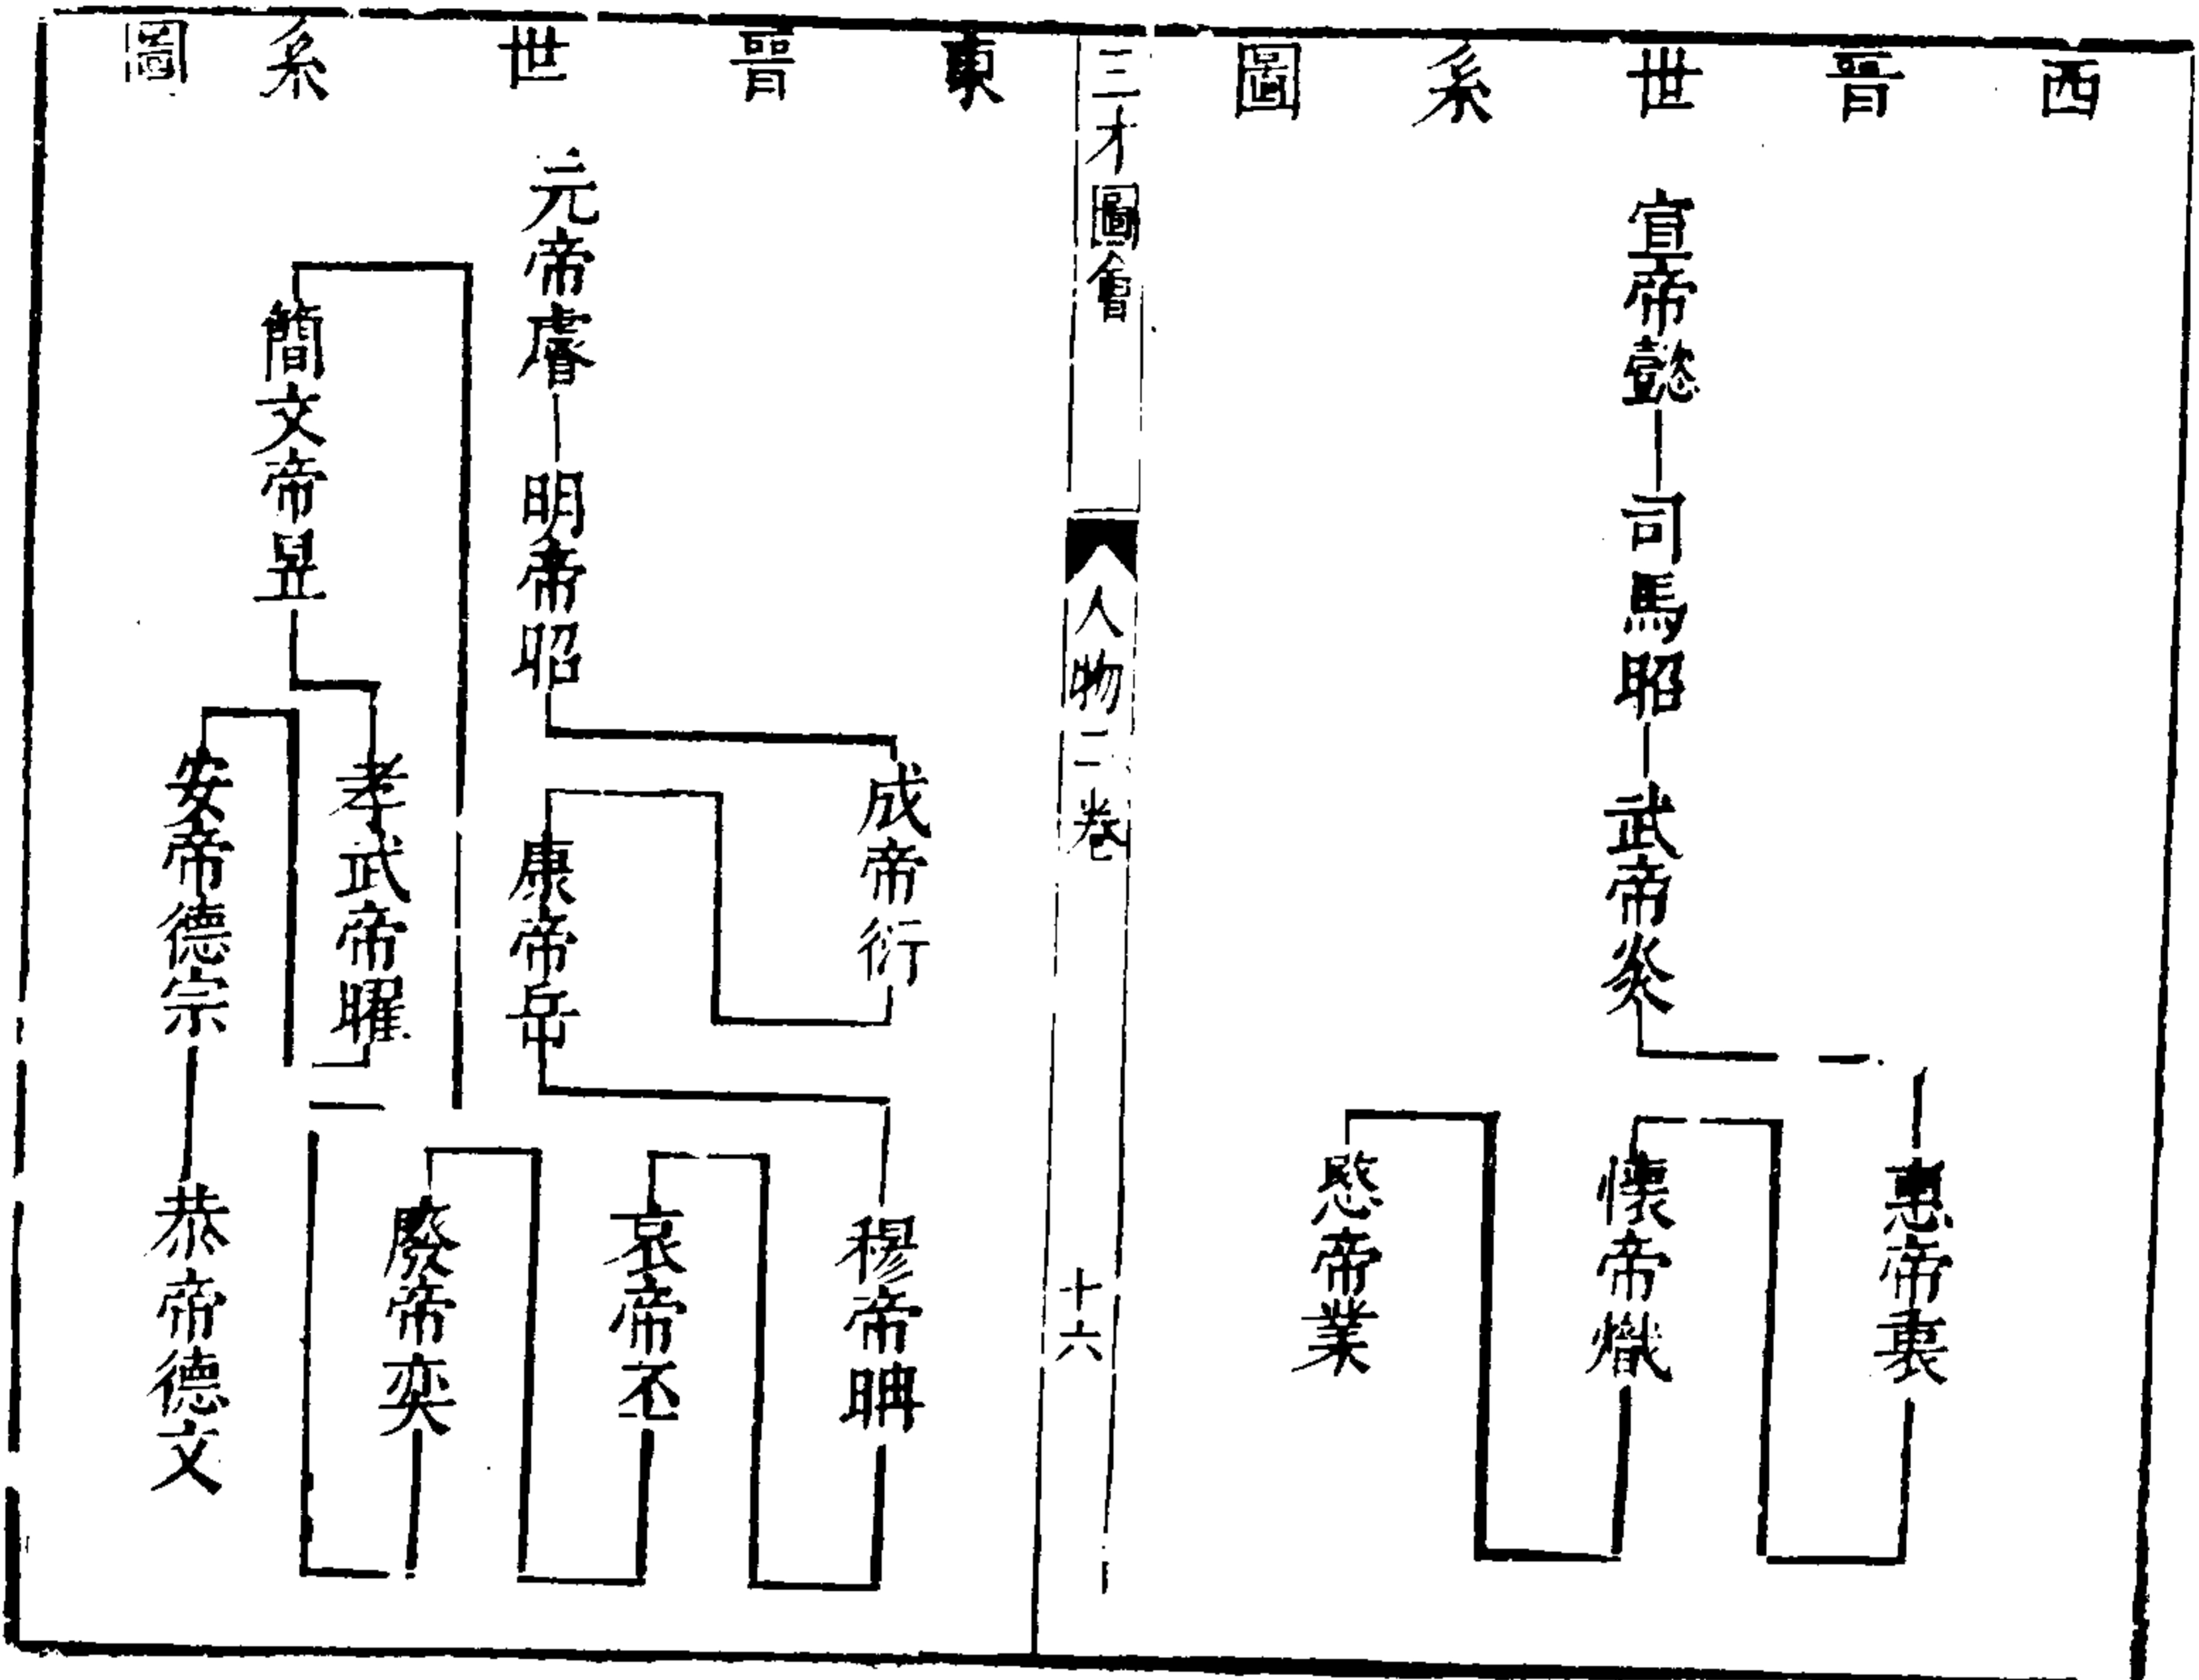 西晉世系圖
宣帝懿
司馬昭
武帝炎
惠帝衷
懷帝熾
愍帝業
三才圖會
人物二卷
十六
東晉世系圖
元帝睿
明帝昭
成帝衍
康帝岳
穆帝聃
哀帝丕
廢帝奕
簡文帝昱
孝武帝曜
安帝德宗
恭帝德文